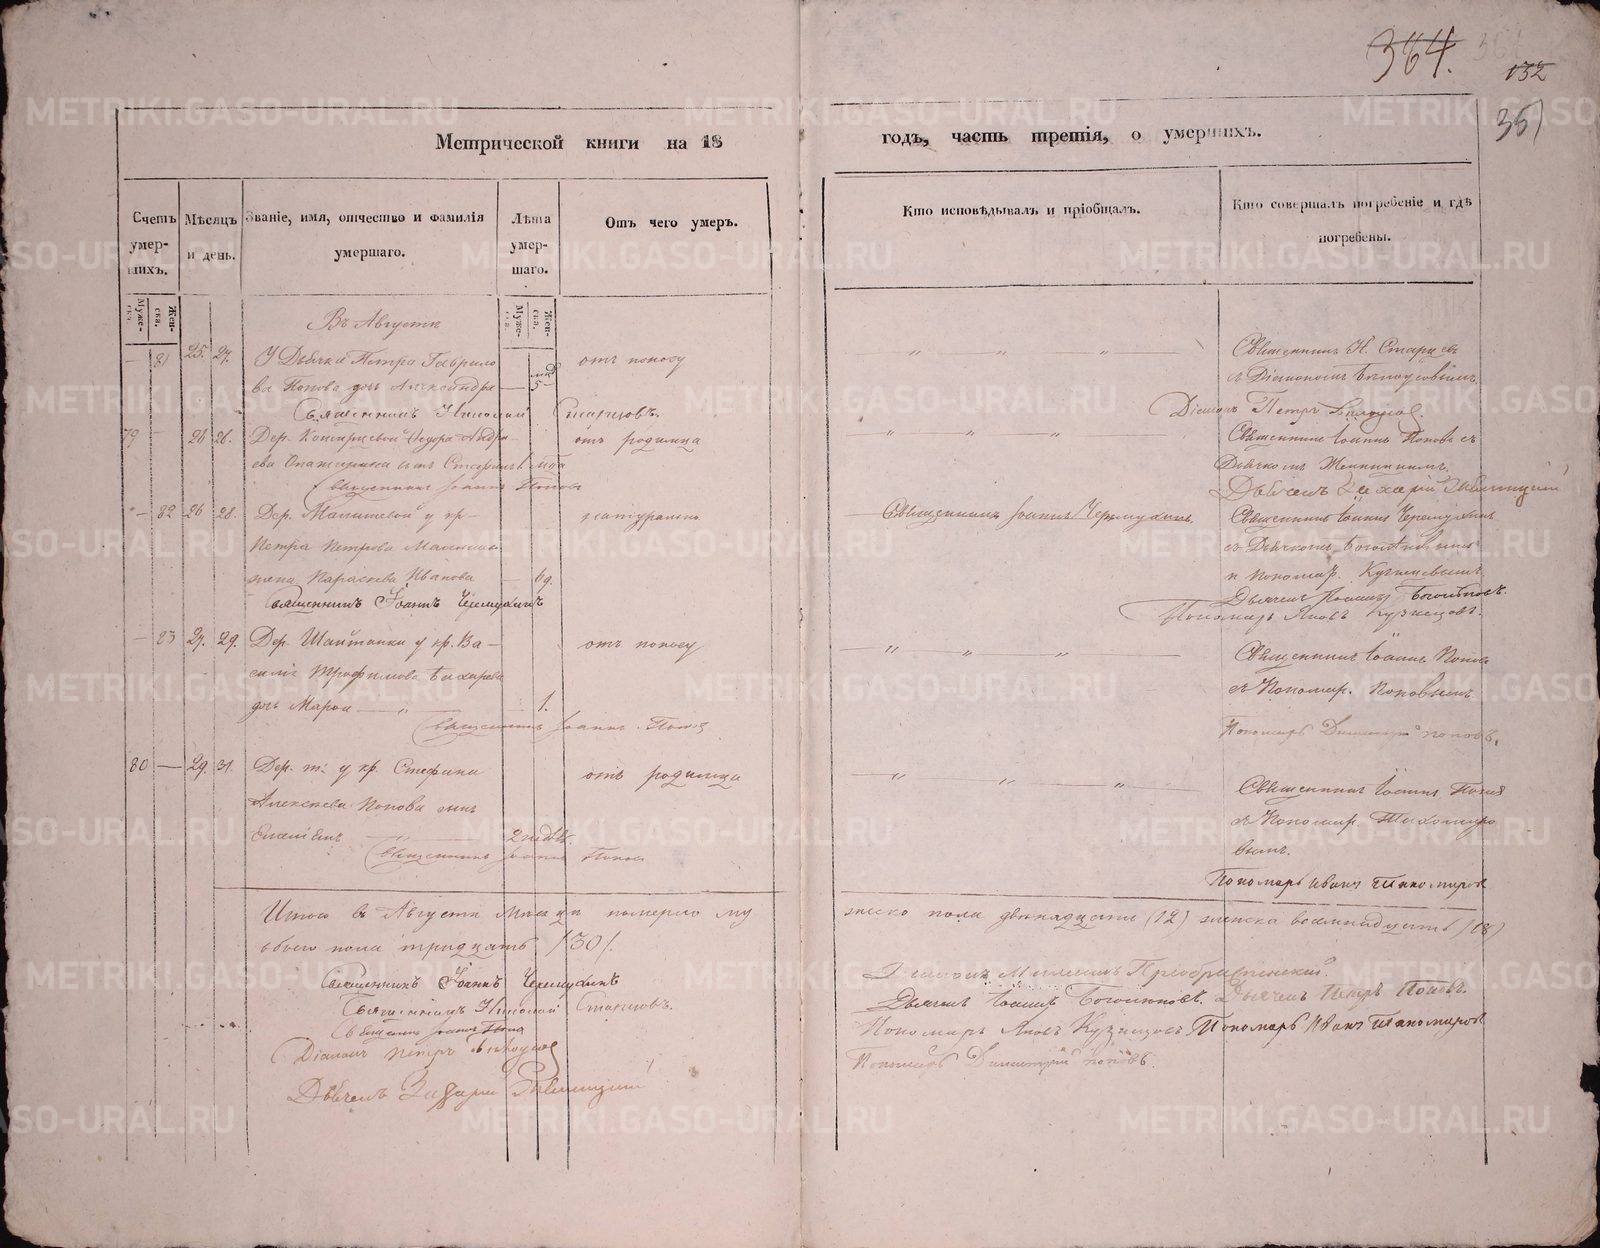 364.
132
361
Метрической книги на 18 годъ, часть третія, о умершихъ.
Счетъ умер- шихъ.
Мѣсяцъ и день.
Званіе, имя, отчество и фамилія умершаго.
Лѣта умер- шаго.
Отъ чего умеръ.
Кто исповѣдывалъ и пріобщалъ.
Кто совершалъ погребеніе и гдѣ погребены.
Муже- ска.
Жен- ска.
Муже- ска.
Жен- ска.
Въ Августѣ
— 81 25. 27. У Дьячка Петра Гаврило отъ поносу Священникъ Н. Старцевъ
ва Попова дочь Александра — 5 съ Діакономъ
Священникъ Николай Старцовъ. Діаконъ Петръ
79 — 26 28. Дер. Федора Андре- отъ родимца Священникъ Іоаннъ Поповъ съ
ева сынъ Стефанъ Дьячкомъ
Священникъ Іоаннъ Поповъ Дьячекъ Захарій
— 82 26 28. Дер. у кр- натурально Священникъ Іоаннъ Черемухинъ Священникъ Іоаннъ Черемухинъ
Петра Петрова съ Дьячкомъ
жена Параскева Иванова — 69. и пономар. Кузнецовымъ
Священникъ Іоаннъ Черемухинъ Дьячекъ Іоаннъ
Пономарь Яковъ Кузнецовъ.
— 83 27. 29. Дер. Шайтанки у кр. Ва- отъ поносу Священникъ Іоаннъ Поповъ
силія Трофимова Бахарева съ Пономар. Поповымъ
дочь Марѳа — „ — 1.
Священникъ Іоаннъ Поповъ Пономарь Димитрій Поповъ.
80 — 29. 31. Дер. т. у кр. Стефана отъ родимца Священникъ Іоаннъ Поповъ
Алексѣева Попова сынъ съ Пономар. Тихомиро
— „ — 2 нед. вымъ.
Священникъ Іоаннъ Поповъ
Пономарь Иванъ Тихомировъ
Итого въ Августѣ Мѣсяцѣ померло му жеска пола двенадцать (12) женска восемнадцать (18)
обоего пола тридцать /30/.
Священникъ Іоаннъ Черемухинъ
Священникъ Николай Старцовъ.
Священникъ Іоаннъ Поповъ
Діаконъ Петръ
Дьячекъ Захарій
Діаконъ Преображенскій.
Дьячекъ Іоаннъ Дьячекъ Петръ Поповъ.
Пономарь Яковъ Кузнецовъ Пономарь Иванъ Тихомировъ
Пономарь Димитрій Поповъ.
METRIKI.GASO-URAL.RU